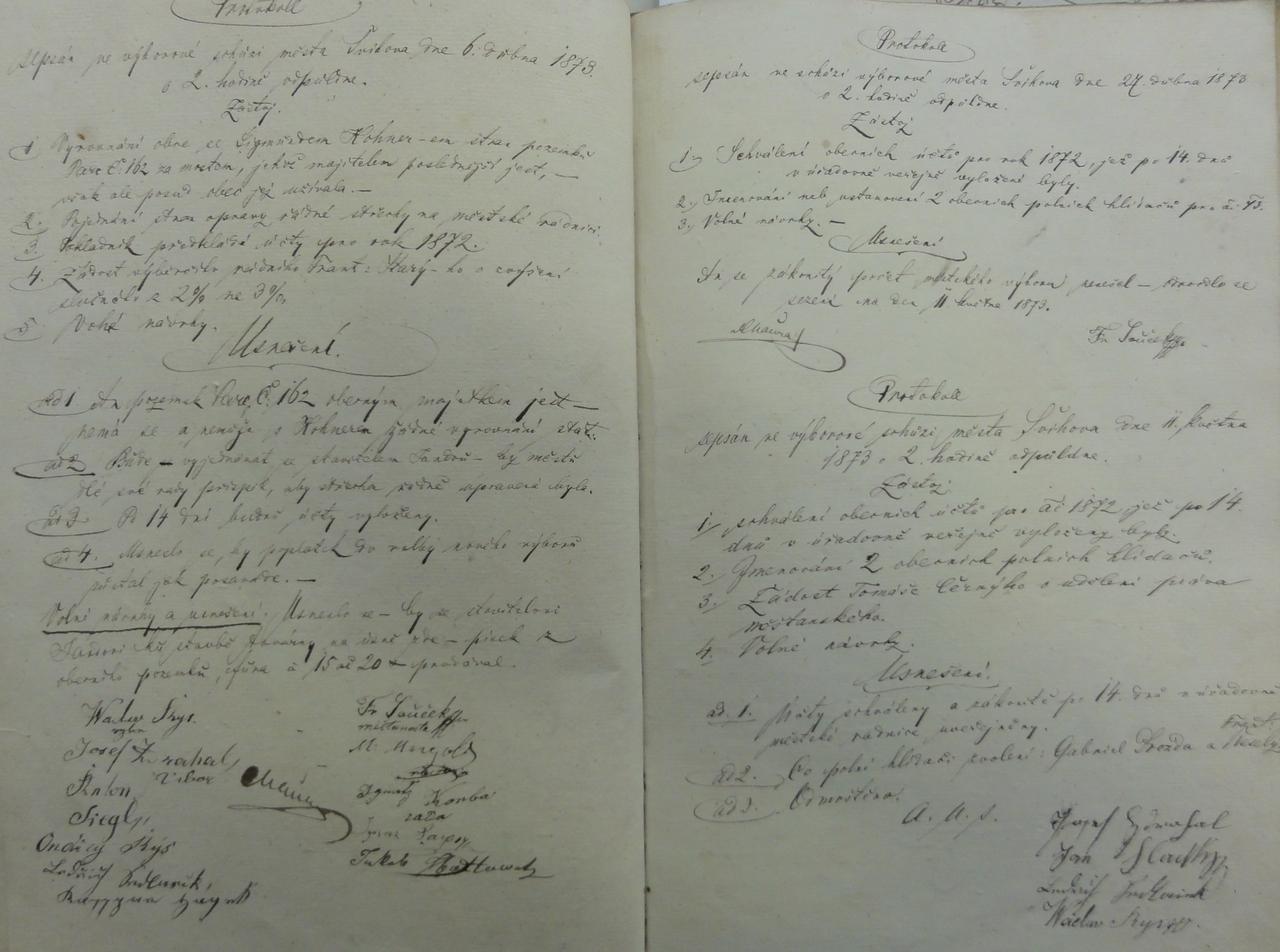 Protokoll
sepsán ve výborové schůzi města Švihova dne 6. dubna 1873
o 2. hodině odpůldne.
Zástoj.
1 Vyrovnání obce se Sigmundem Kohner-em stran pozemku
Parc. Č. 162 za mostem, jehož majitelem poslednější jest, —
však ale posud obec jej užívala. —
2. Pojednání stran opravy řádné střechy na městské radnici.
3. Pokladník předkládá účty pro rok 1872.
4. Žádost výberčího Frant: Starý-ho o zvýšení
služného z 2% na 3%.
5 Volné návrhy.
Usnešení.
ad 1 An pozemek Parc. Č. 162 obecným majetkem jest —
nemá se a nemůže s Kohnerem žádné vyrovnání stát.
ad 2 Bude — vyjednávat se stavitelem — by městu
dle své rady přispěl, aby střecha řádně upravená byla.
ad 3 Po 14 dní buďtež účty vyloženy.
ad 4. Usneslo se, by poplatek do volby nového výboru
zůstal jak posavade. —
Volné návrhy a usnešení. Usneslo se — by se staviteli
ku stavbě továrny na zde — písek z
obecního pozemku, fůra á 15 až 20 x prodával.
Waclav Krys.
Josef Zdrahal
Anton
Siegl,
Ondřej Krys
Ludvík Sedlaczek,
Fr. Souček
měštanosta
M. Mergold
Ignatz Korba
rada
Jakob
Protokoll
sepsán ve schůzi výborové města Švihova dne 27. dubna 1873
o 2. hodině odpůldne.
Zástoj
1. Schválení obecních účtů pro rok 1872, jež po 14. dnů
v úřadovně veřejně vyloženy byly.
2. Jmenování neb ustanovení 2 obecních polních hlídačů pro
3. Volné návrky. —
Usnešení
An se zákonitý počet městského výboru nesešel — odročilo se
sezení na den 11 května 1873.
Fr. Souček
Protokoll
sepsán ve výborové schůzi města Švihova dne 11. května
1873 o 2. hodině odpůldne.
Zástoj
1. schválení obecních účtů pro 1872 jež po 14.
dnů v úřadovně veřejně vyloženy byly.
2. Jmenování 2 obecních polních hlídačů.
3. Žádost Tomáše Černýho o udělení práva
měštanského.
4. Volné návrhy.
Usnešení.
ad. 1. Účty schváleny a zákonitě po 14. dnů v úřadovně
městské radnice uveřejněny.
ad 2. Co polní hlídači zvoleni: Gabriel Drozda a Frant.
ad 3. Odmrštěno.
A. U. S.
Josef Zdrahal
Jan Hladky
Ludvik Sedlaczek
Waclav Krys